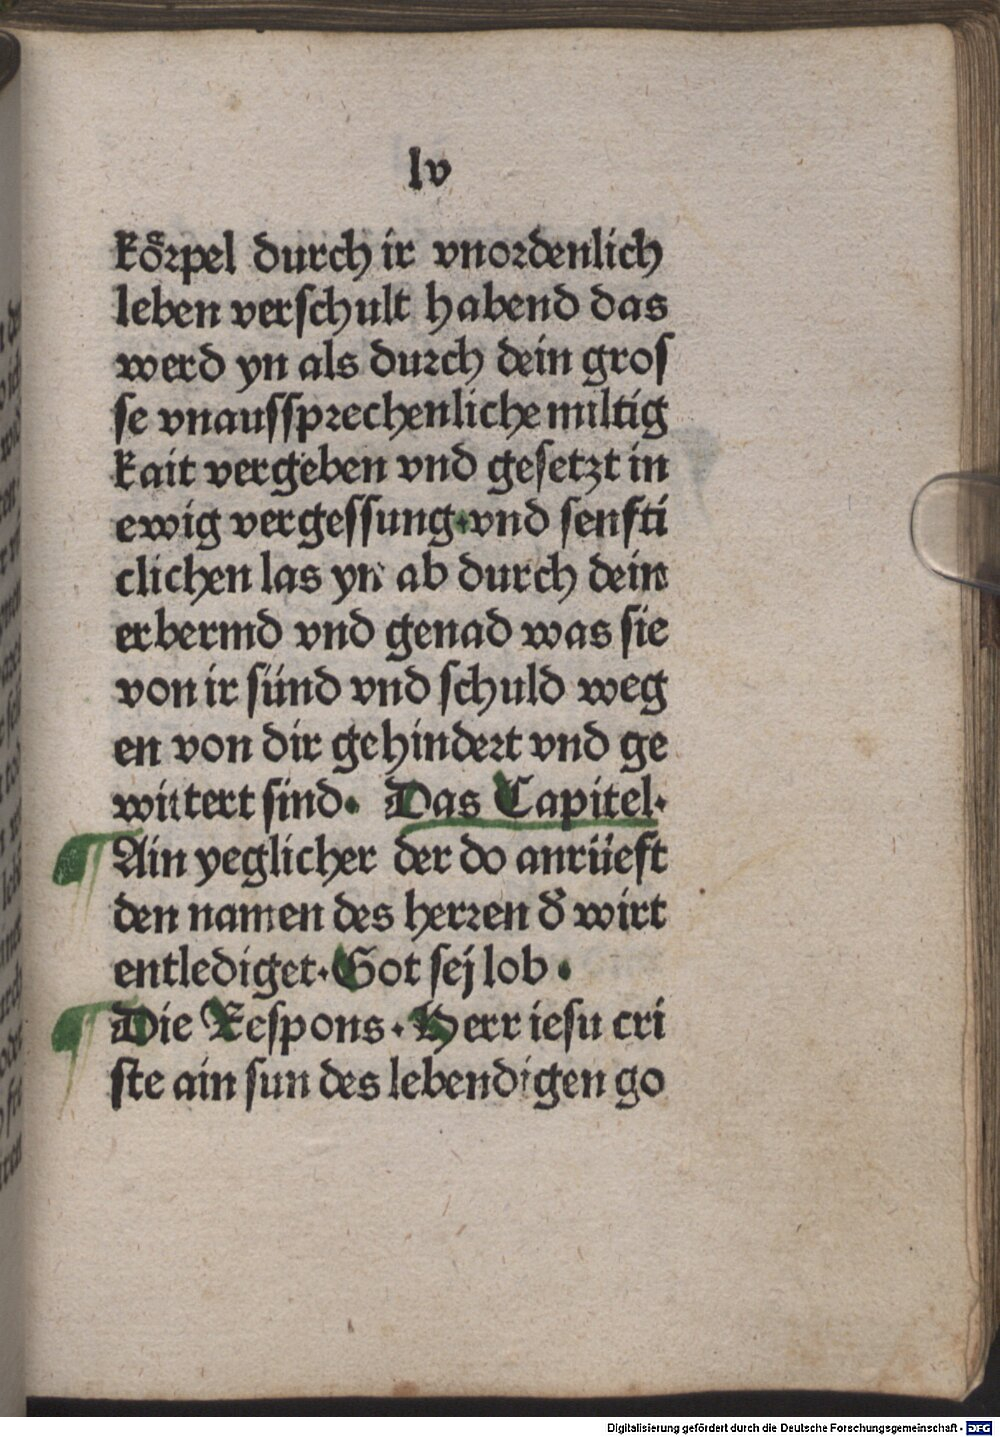 lv
koͤrpel durch ir vnordenlich
leben verschult habend das
werd yn als durch dein gros
se vnaussprechenliche miltig
kait vergeben vnd gesetzt in
ewig vergessung·vnd senfti
clichen las yn ab durch dein
erbermd vnd genad was sie
von ir sünd vnd schuld weg
en von dir gehindert vnd ge
wittert sind· Das Capitel·
Ain yeglicher der do anrüeft
den namen des herren dˀ wirt
entlediget·Got sej lob·
Die Respons·Herr iesu cri
ste ain sun des lebendigen go
Digitalisierung gefördert durch die Deutsche Forschungsgemeinschaft - DFG